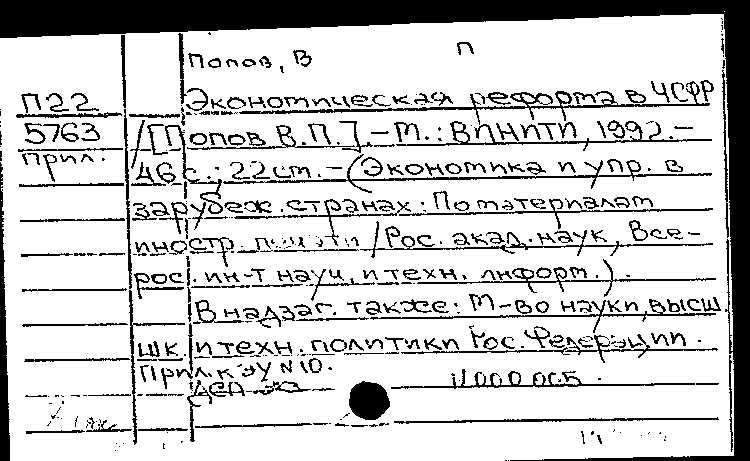 Попов, В П
П22 Экономическая реформа в ЧСФР
5763 /[Попов В.П.].-М.: ВИНИТИ, 1992.-
Прил. 46 с.; 22 см. - (Экономика и упр. в
зарубеж. странах: По материалам
иностр. печати / Рос. акад. наук, Все-
рос. ин-т науч. и техн. информ.).
В надзаг. также: М-во науки, высш.
шк. и техн. политики Рос. Федерации.
Прил. к ЭУ N 10.